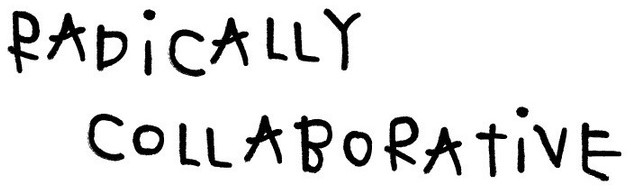 RADiCALLY
COLLABORATiVE